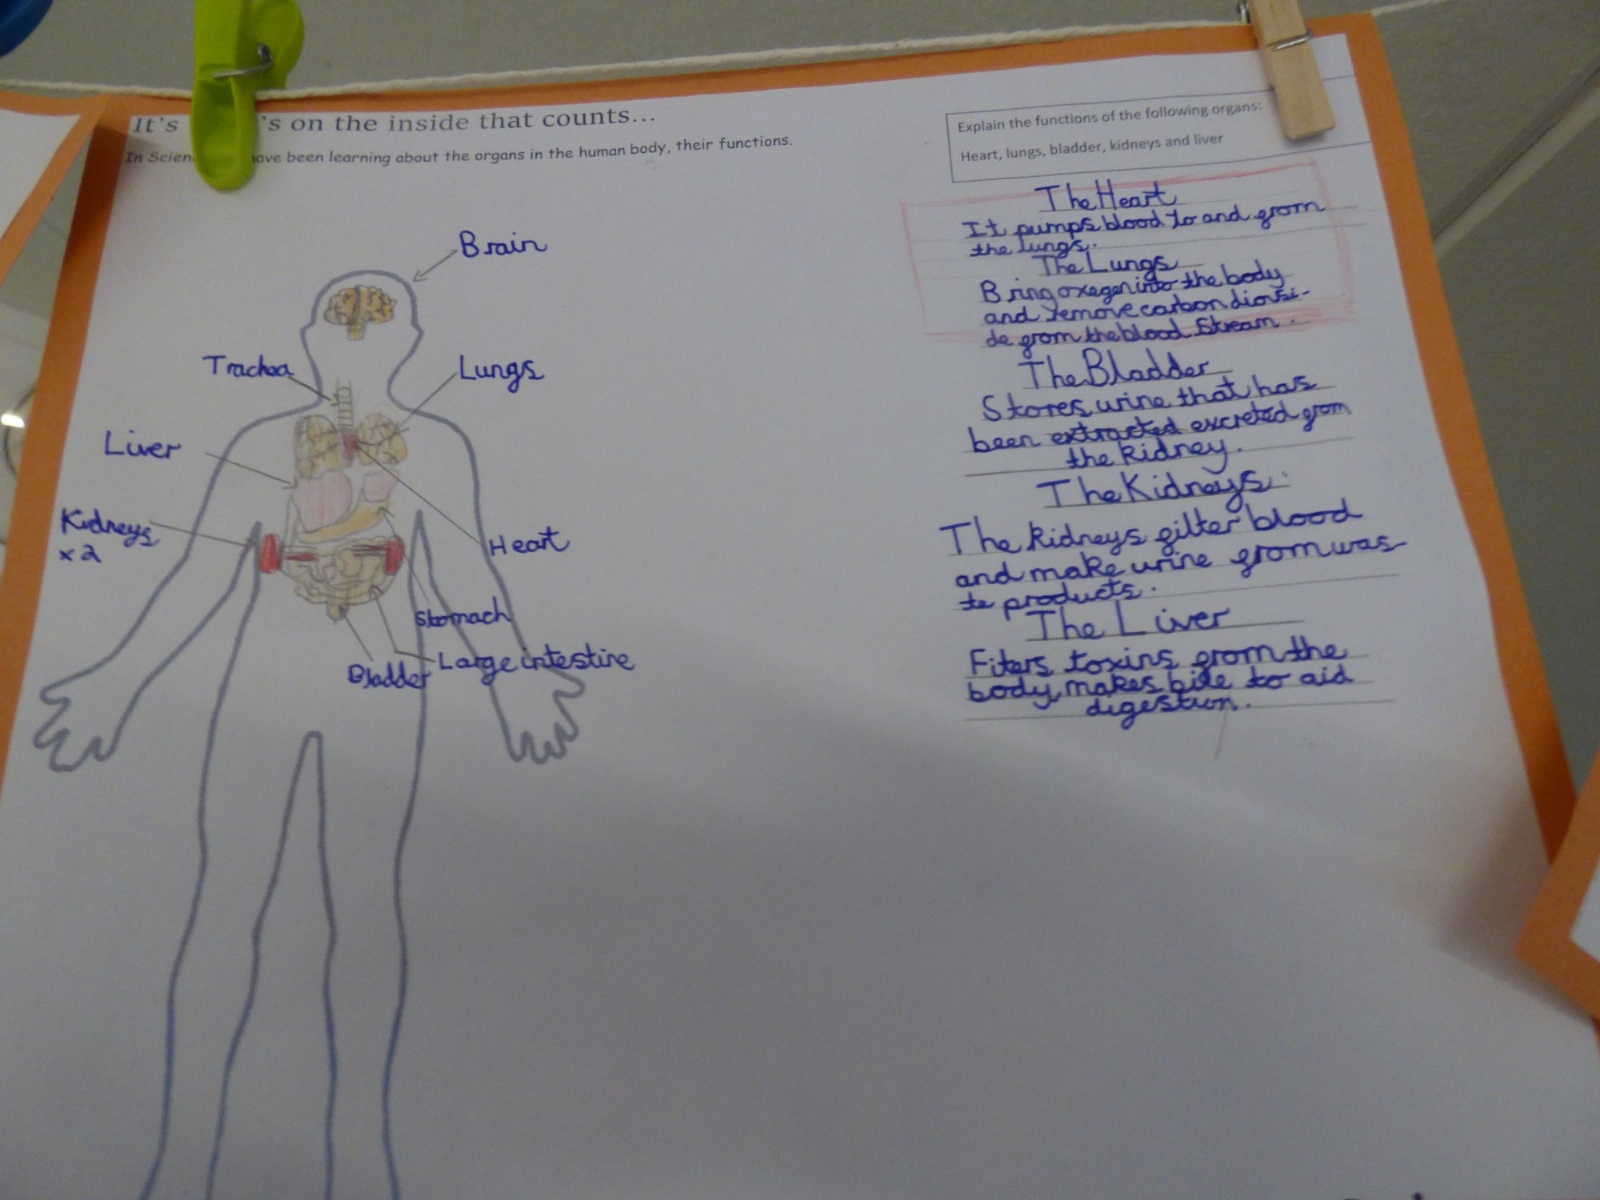 It's 's on the inside that counts...
In Scien ave been learning about the organs in the human body, their functions.
Brain
Trachea
Lungs
Liver
Kidneys
x2
Heart
Stomach
Large intestine
Bladder
Explain the functions of the following organs:
Heart, lungs, bladder, kidneys and liver
The Heart
It pumps blood to and from
the lungs.
The Lungs
Bring oxegen into the body
and remove carbon dioxsi-
de from the blood Stream.
The Bladder
Stores urine that has
been extracted excreted from
the kidney.
The Kidneys
The kidneys filter blood
and make urine from was-
te products.
The Liver
Fiters toxins from the
body, makes bile to aid
digestion.